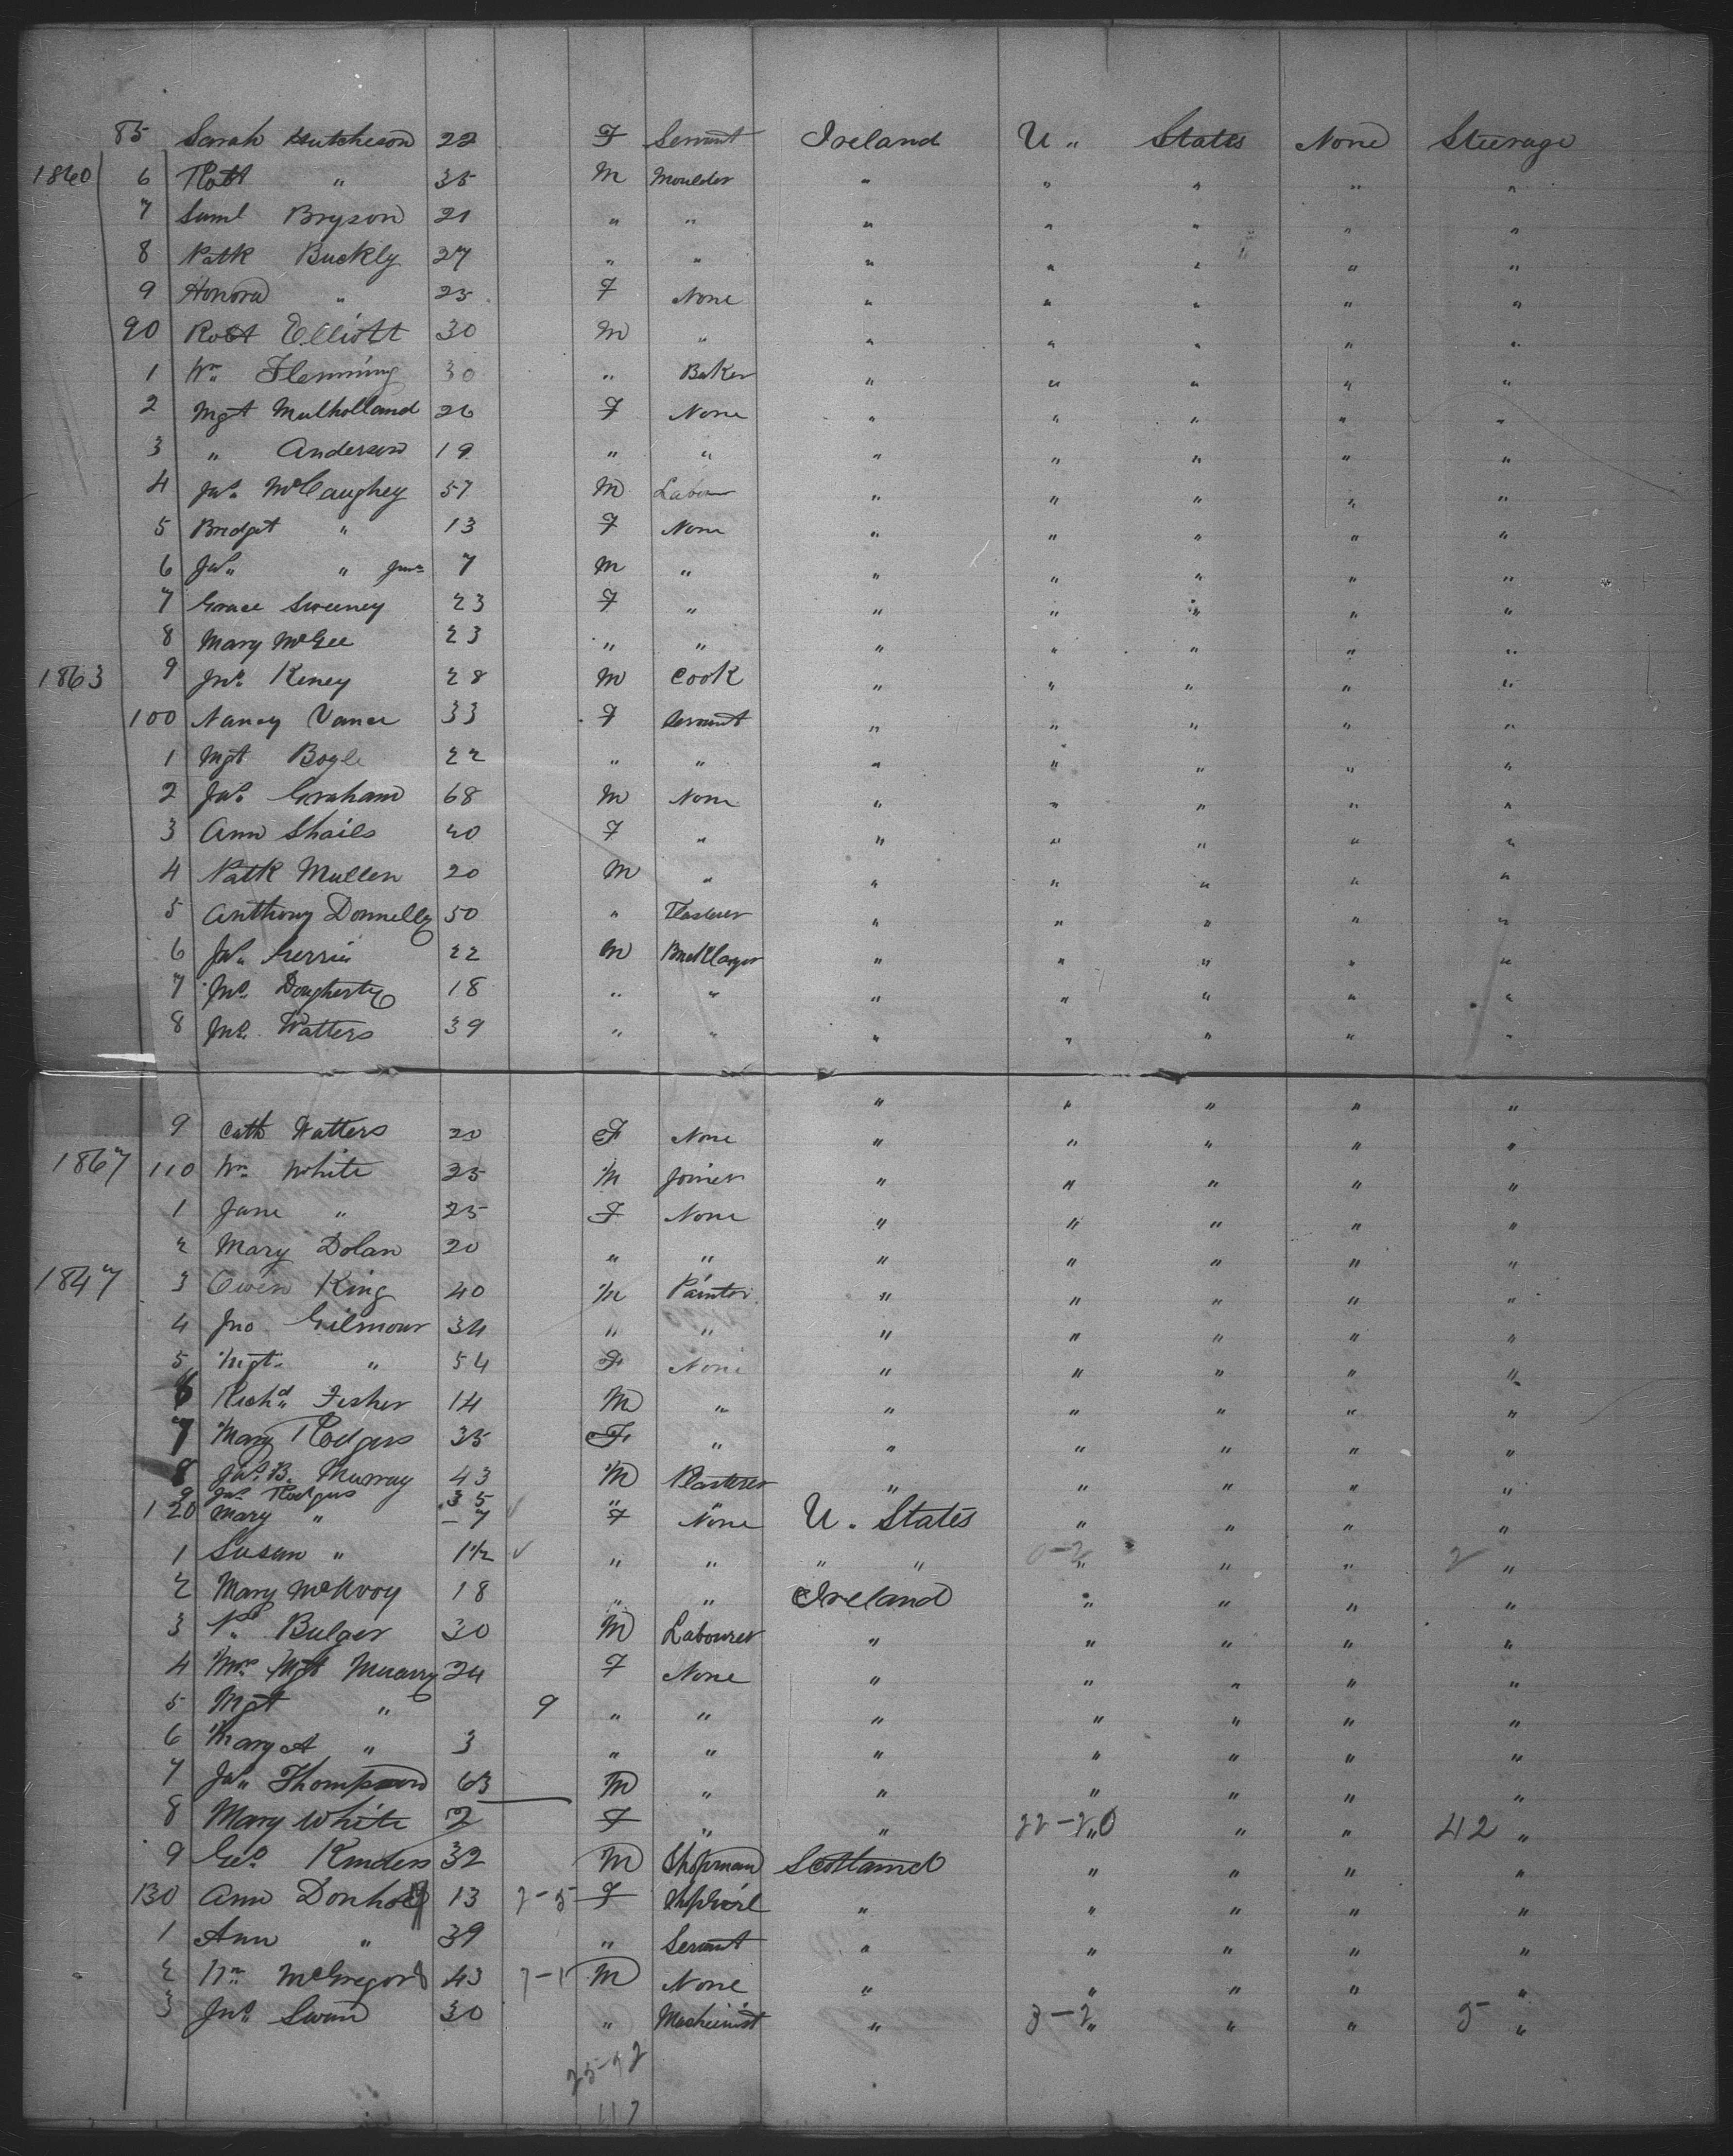 85 Sarah Hutcheson 22 F Servant Ireland U „ States None Steerage
1860 6 Robt „ 35 M Moulder „ „ „ „ „
7 Saml Bryson 21 „ „ „ „ „ „ „
8 Patk Buckly 27 „ „ „ „ „ „ „
9 Honora „ 25 F None „ „ „ „ „
90 Robt Elliott 30 M „ „ „ „ „ „
1 Wm Flemming 30 „ Baker „ „ „ „ „
2 Mgt Mulholland 26 F None „ „ „ „ „
3 „ Anderson 19 „ „ „ „ „ „ „
4 Jas McCaughey 57 M Labour „ „ „ „ „
5 Bridget „ 13 F None „ „ „ „ „
6 Jas „ Junr 7 M „ „ „ „ „ „
7 Grace Sweeney 23 F „ „ „ „ „ „
8 Mary McGee 23 „ „ „ „ „ „ „
1863 9 Jno Keney 28 M Cook „ „ „ „ „
100 Nancy Vance 33 F Servant „ „ „ „ „
1 Mgt Bogle 22 „ „ „ „ „ „ „
2 Jas Graham 68 M None „ „ „ „ „
3 Ann Shails 20 F „ „ „ „ „ „
4 Patk Mullen 20 M „ „ „ „ „ „
5 Anthony Donnelly 50 „ Plasterer „ „ „ „ „
6 Jas 22 M Bricklayer „ „ „ „ „
7 Jno Dougherty 18 „ „ „ „ „ „ „
8 Jno Watters 39 „ „ „ „ „ „ „
„ „ „ „ „
9 Cath Watters 20 F None „ „ „ „ „
1867 110 Wm White 25 M Joiner „ „ „ „ „
1 Jane „ 25 F None „ „ „ „ „
2 Mary Dolan 20 „ „ „ „ „ „ „
1847 3 Owen King 40 M Painter „ „ „ „ „
4 Jno Gilmour 34 „ „ „ „ „ „ „
5 Mgt „ 54 F None „ „ „ „ „
6 Richd Fisher 14 M „ „ „ „ „ „
7 Mary Rodgers 35 F „ „ „ „ „ „
8 Jas B. Murray 43 M Plasterer „ „ „ „ „
9 Jas Rodgers 35 „
120 Mary „ 7 F None U. States „ „ „ „
1 Susan „ 1½ „ „ „ „ 0-2 „ „ „ 2 „
2 Mary McKvoy 18 „ „ Ireland „ „ „ „
3 Bulger 30 M Labourer „ „ „ „ „
4 Mrs Mgt Muarry 24 F None „ „ „ „ „
5 Mgt „ 9 „ „ „ „ „ „ „
6 Mary A „ 3 „ „ „ „ „ „ „
7 Jas Thompson 63 M „ „ „ „ „ „
8 Mary White 2 F „ „ 22-20 „ „ „ 42 „
9 Geo Kinders 32 M Shopman Scotland „ „ „ „
130 Ann 13 2-5 F Shopgirl „ „ „ „ „
1 Ann „ 39 „ Servant „ „ „ „ „
2 Wm McGregor 43 7-1 M None „ „ „ „ „
3 Jno Swan 30 „ Machienist „ 3-2 „ „ „ 5 „
117